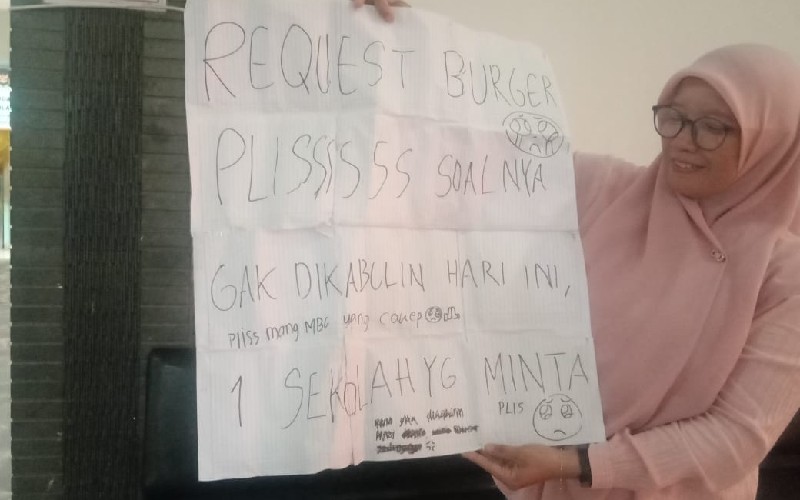 REQUEST BURGER
PLISSSISSS SOALNYA
GAK DIKABULIN HARI INI,
Pliss mang MBG yang cakep
1 SEKOLAH YG MINTA
PLIS